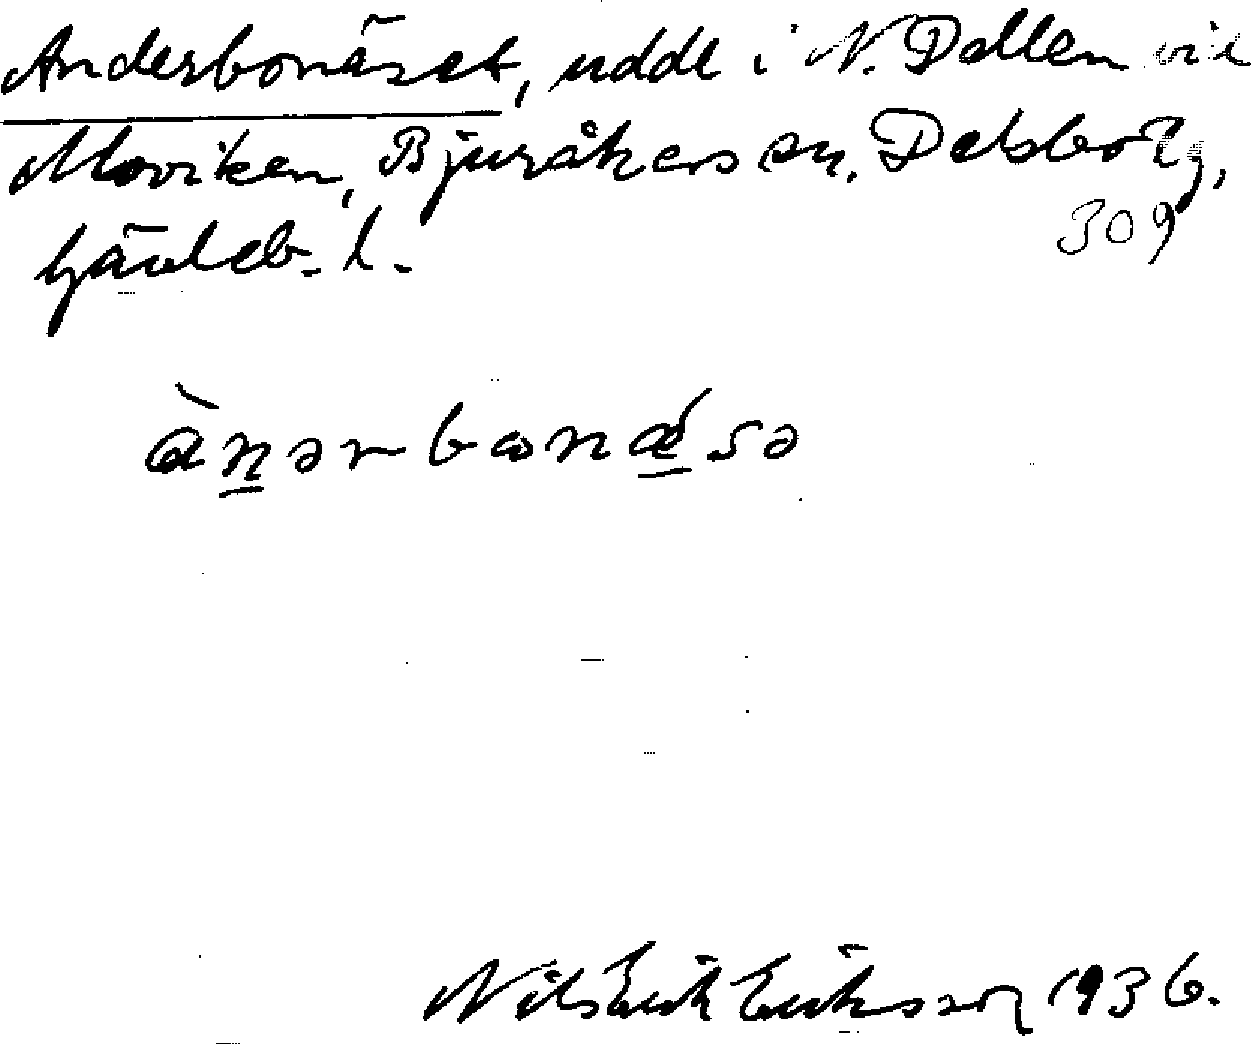 Anderbonäset, udde i N. Dellen vid
Moviken, Bjuråkers sn, Delsbo tg,
Gävleb. l.
309
ànərbonǽsə
Nils Erik Eriksson 1936.